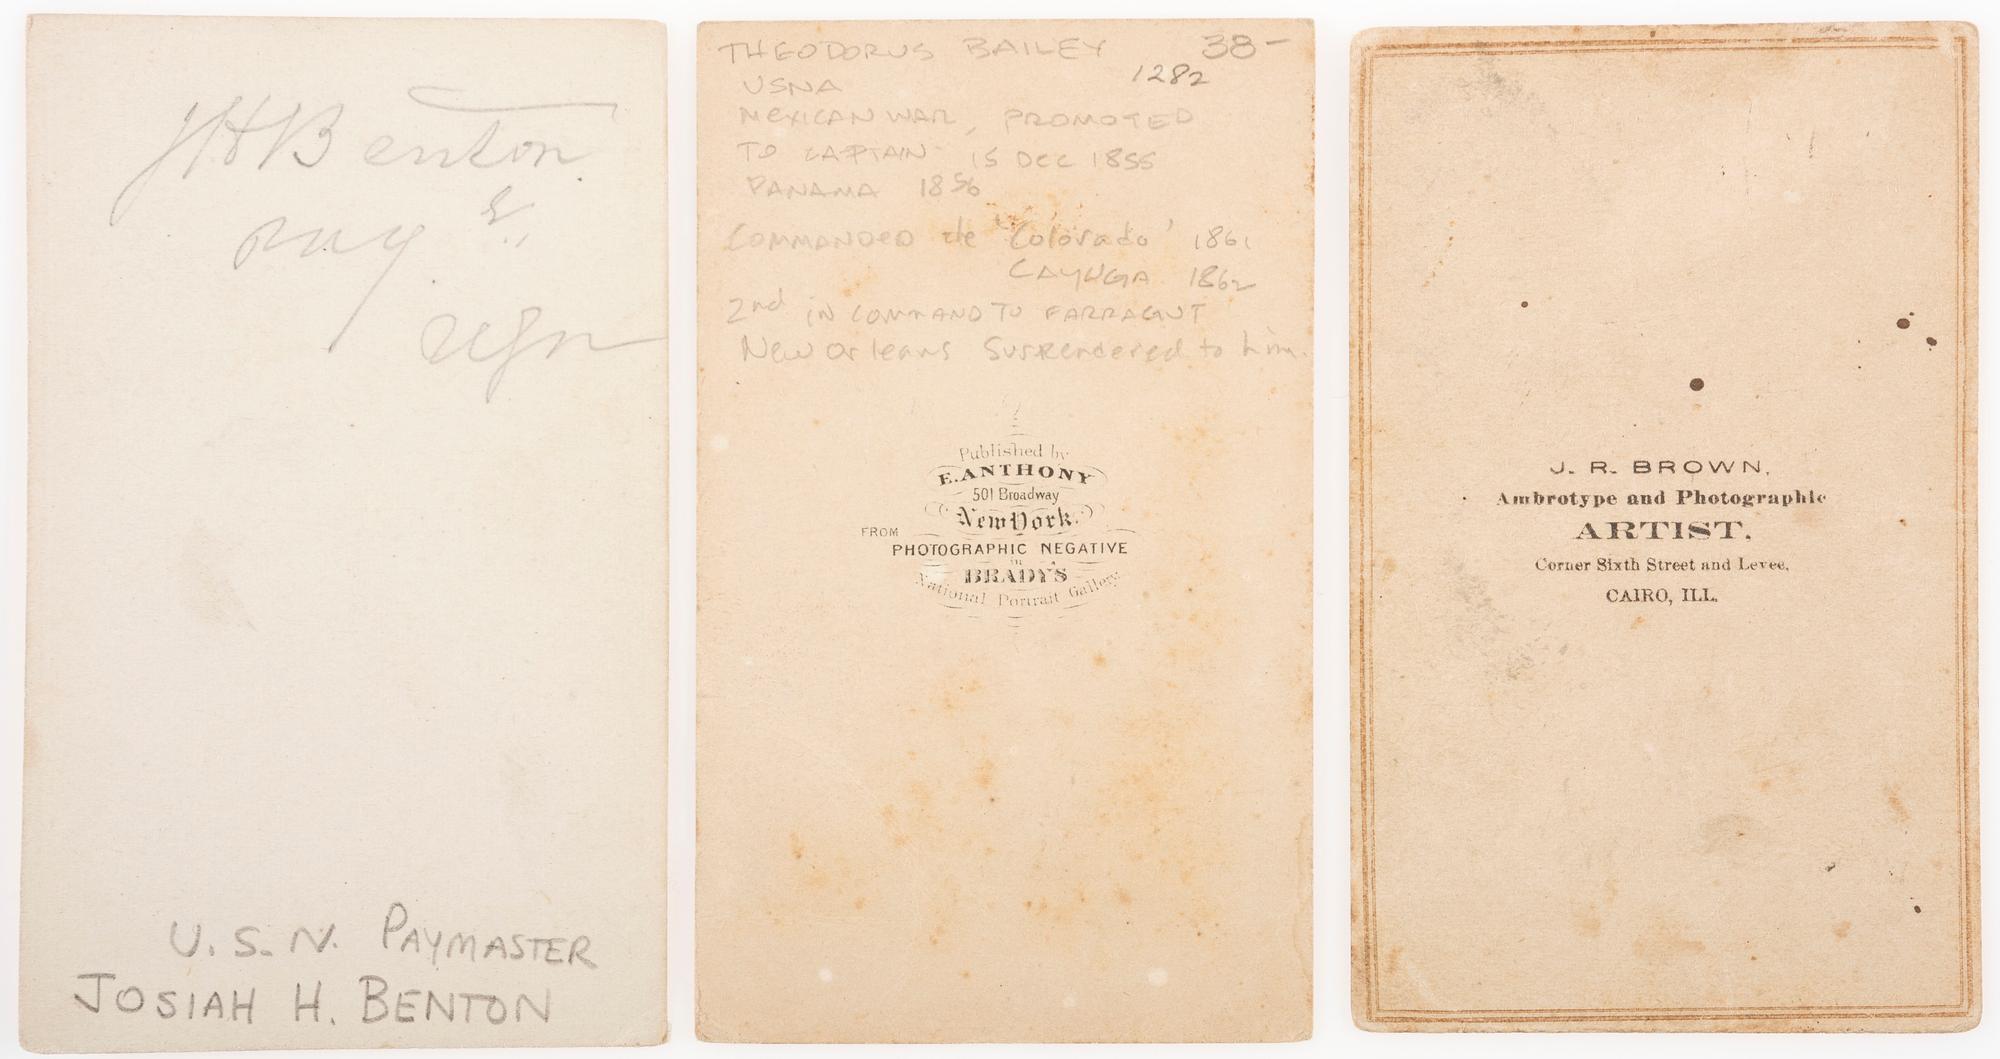 J H Benton
Pay r.
USN
U.S.N. PAYMASTER
JOSIAH H. BENTON
THEODORUS BAILEY 38-
1282
USNA
MEXICAN WAR, PROMOTED
TO CAPTAIN 15 DEC 1855
PANAMA 1856
COMMANDED the 'Colorado' 1861
CAYUGA 1862
2nd IN COMMAND TO FARRAGUT
New Orleans Surrendered to him.
Published by
E. ANTHONY
501 Broadway
New York.
FROM
PHOTOGRAPHIC NEGATIVE
in
BRADY'S
National Portrait Gallery.
J. R. BROWN,
Ambrotype and Photographic
ARTIST.
Corner Sixth Street and Levee,
CAIRO, ILL.